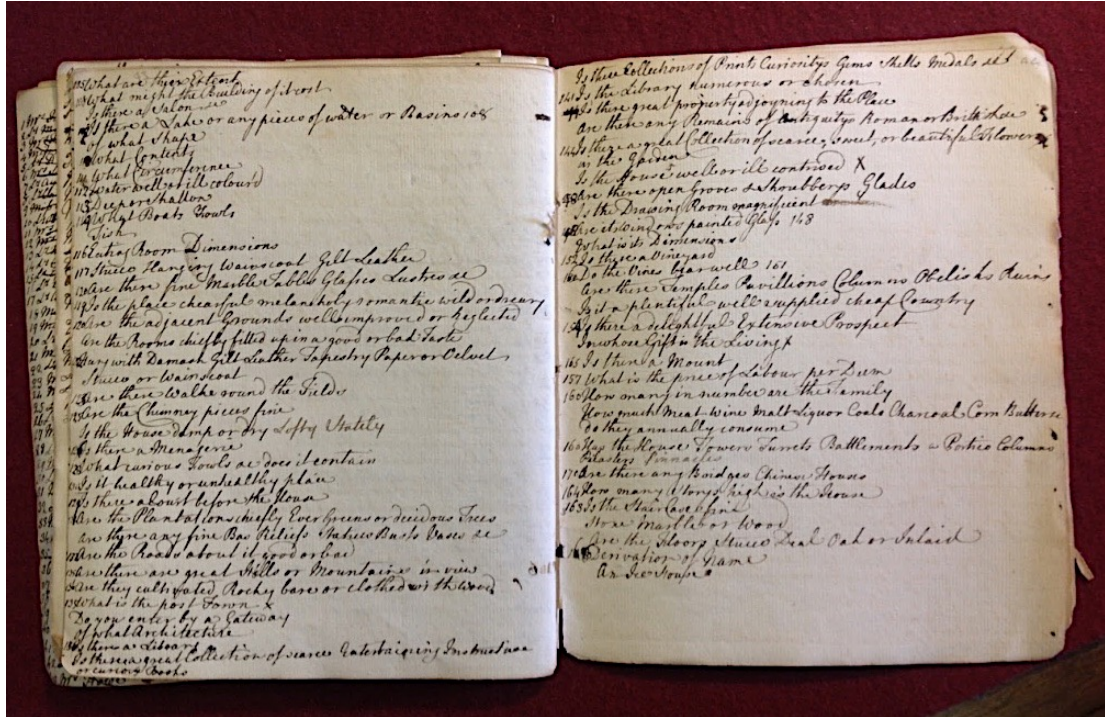 What are their Extent
What might the Building of it cost
Is there a Salon &c
Is there a Lake or any pieces of water or Basins 108
of what Shape
What Contents
What Circumference
Water well or ill colour'd
113 Deep or shallow
What Boats Fowls
Fish
116 Entry Room Dimensions
117 Stucco Hanging Wainscoat Gilt Leather
Are there fine Marble Tables Glasses Lustres &c
Is the place chearful melancholy romantic wild or dreary
Are the adjacent Grounds well improved or Neglected
Are the Rooms chiefly fitted up in a good or bad Taste
Hung with Damask Gilt Leather Tapestry Paper or Velvet
Stucco or Wainscoat
Are there Walks round the Fields
Are the Chimney pieces fine
Is the House damp or dry Lofty Stately
Is there a Menagerie
What curious Fowls &c does it contain
Is it healthy or unhealthy place
Is there a Court before the House
Are the Plantations chiefly Ever Greens or deciduous Trees
are there any fine Bas Reliefs Statues Busts Vases &c
Are the Roads about it good or bad
are there are great Hills or Mountains in view
Are they cultivated Rocky bare or clothed with wood
What is the post Town x
Do you enter by a Gateway
of what Architecture
Is there a Library
Is there a great Collection of scarce Entertaining Instructive
or curious books
Is there Collections of Prints Curiositys Gems Shells Medals
Is the Library numerous or chosen
Is there great property adjoyning to the Place
Are there any Remains of Antiquity Roman or British &c
Is there a great Collection of scarce, sweet, or beautiful Flowers
in the Garden
Is the House well or ill contrived X
Are there open Groves & Shrubberys Glades
Is the Drawing Room magnificent
Are its windows painted Glass 148
What is its Dimensions
Is there a Vineyard
Do the Vines bear well 151
Are there Temples Pavillions Columns Obelisks Ruins
Is it a plentiful well supplied cheap Country
Is there a delightful Extensive Prospect
In whose Gift is the Living X
165 Is there a Mount
157 What is the price of Labour per Diem
160 How many in number are the Family
How much Meat Wine Malt Liquor Coals Charcoal Corn Butter &c
do they annually consume
Has the House Towers Turrets Battlements a Portico Columns
Pilasters Pinnacles
170 Are there any Bridges Chinese Houses
164 How many Storys high is the House
163 Is the Stair Case fine
Stone Marble or Wood
Are the Floors Stucco Deal Oak or Inlaid
Derivation of Name
An Ice House